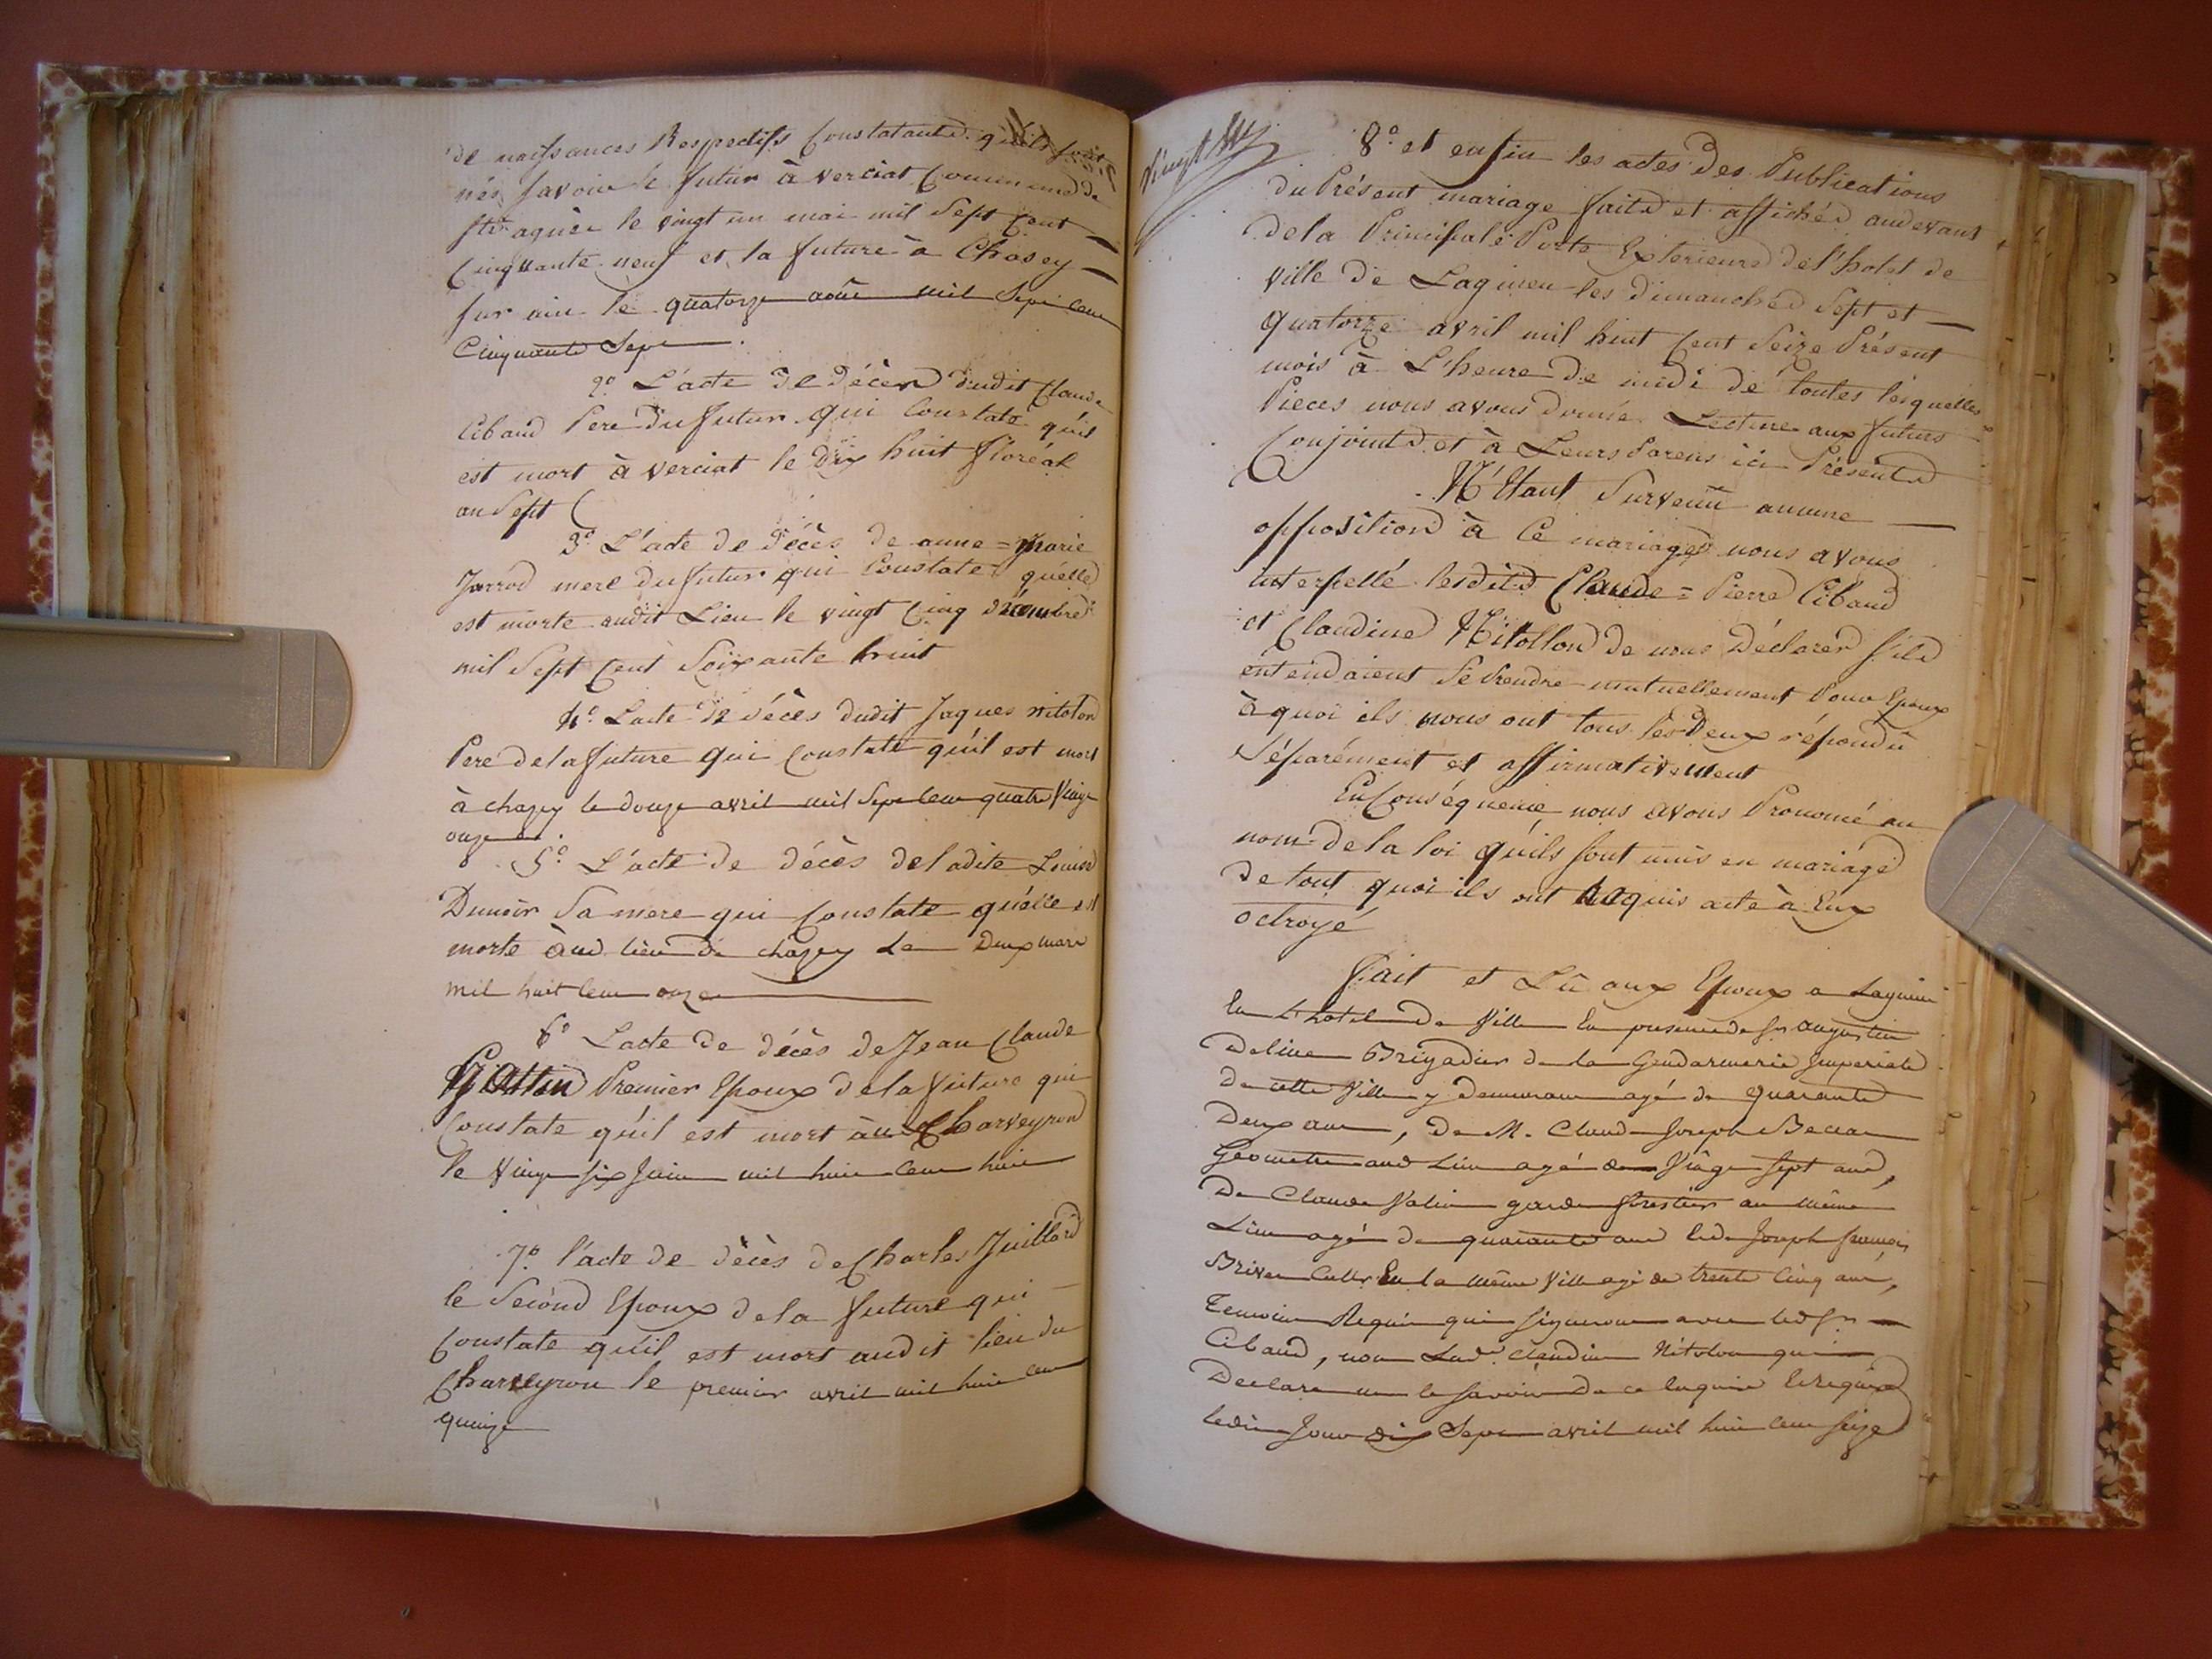 de naissances Respectifs Constatants qu'ils sont
nés, savoir le futur à verciat Commune de
ste agnès le vingt un mai mil Sept Cent
Cinquante neuf et la future à Chasey
sur ain le quatorze août mil Sept cent
Cinquante Sept.
2.º L'acte de décès dudit Claude
Cibaud Pere du futur qui Constate qu'il
est mort à verciat le dix huit floréal
an Sept
3.º L'acte de décès de anne = Marie
Jarrod mere du futur qui Constate qu'elle
est morte audit Lieu le vingt Cinq décembre
mil Sept Cent Soixante huit
4.º Lacte de décès dudit Jaques nitolon
Pere de la future qui Constate qu'il est mort
à chazey le douze avril mil Sept cent quatre Vingt
onze.
5.º L'acte de décès de ladite Louise
Dunoir Sa mere qui Constate qu'elle est
morte aud lieu de chazey Le Deux mars
mil huit cent onze
6.º Lacte de décès de Jean Claude
Premier Epoux de la future qui
Constate qu'il est mort au Charveyron
le Vingt six Juin mil huit cent huit
7.º l'acte de décès de Charles Juillard
le Second Epoux de la future qui
Constate qu'il est mort audit lieu du
Charveyron le premier avril mil huit cent
quinze
8.º et enfin les actes des Publications
du Présent mariage faites et affichées audevant
de la Principale Porte Exterieure de l'hotel de
ville de Lagnieu les dimanches Sept et
quatorze avril mil huit Cent Seize Présent
mois à L'heure de midi de toutes lesquelles
Pieces nous avons donné Lecture aux futurs
Conjoints et à Leurs Parens ici Présents
N'étant Survenu aucune
opposition à Ce mariage nous avons
interpellé lesdits Claude = Pierre Cibaud
et Claudine Nitollon de nous Déclarer S'ils
entendaient Se Prendre mutuellement Pour Epoux
à quoi ils nous ont tous les Deux répondu
Séparément et affirmativement
En Conséquence nous avons Prononcé au
nom de la loi qu'ils sont unis en mariage
de tout quoi ils ont Requis acte à Eux
octroyé
Fait et Lû aux Epoux a Lagnieu
En L'hotel De Ville En presence de Sr Augustin
Brigadier de la Gendarmerie Imperiale
De cette Ville y Demeurant agé de quarante
Deux ans, De M. Claude Joseph
Géometre aud Lieu agé de Vingt Sept ans,
De Claude Valin garde forestier au même
Lieu agé de quarante ans et de Joseph françois
En la même Ville agé de trente Cinq ans,
Temoins Requis qui signeront avec led Sr
Cibaud, non Lade Claudine Nitolon qui a
Declaré ne le savoir De ce Enquise et requise
ledit Jour dix Sept avril mil huit cent seize